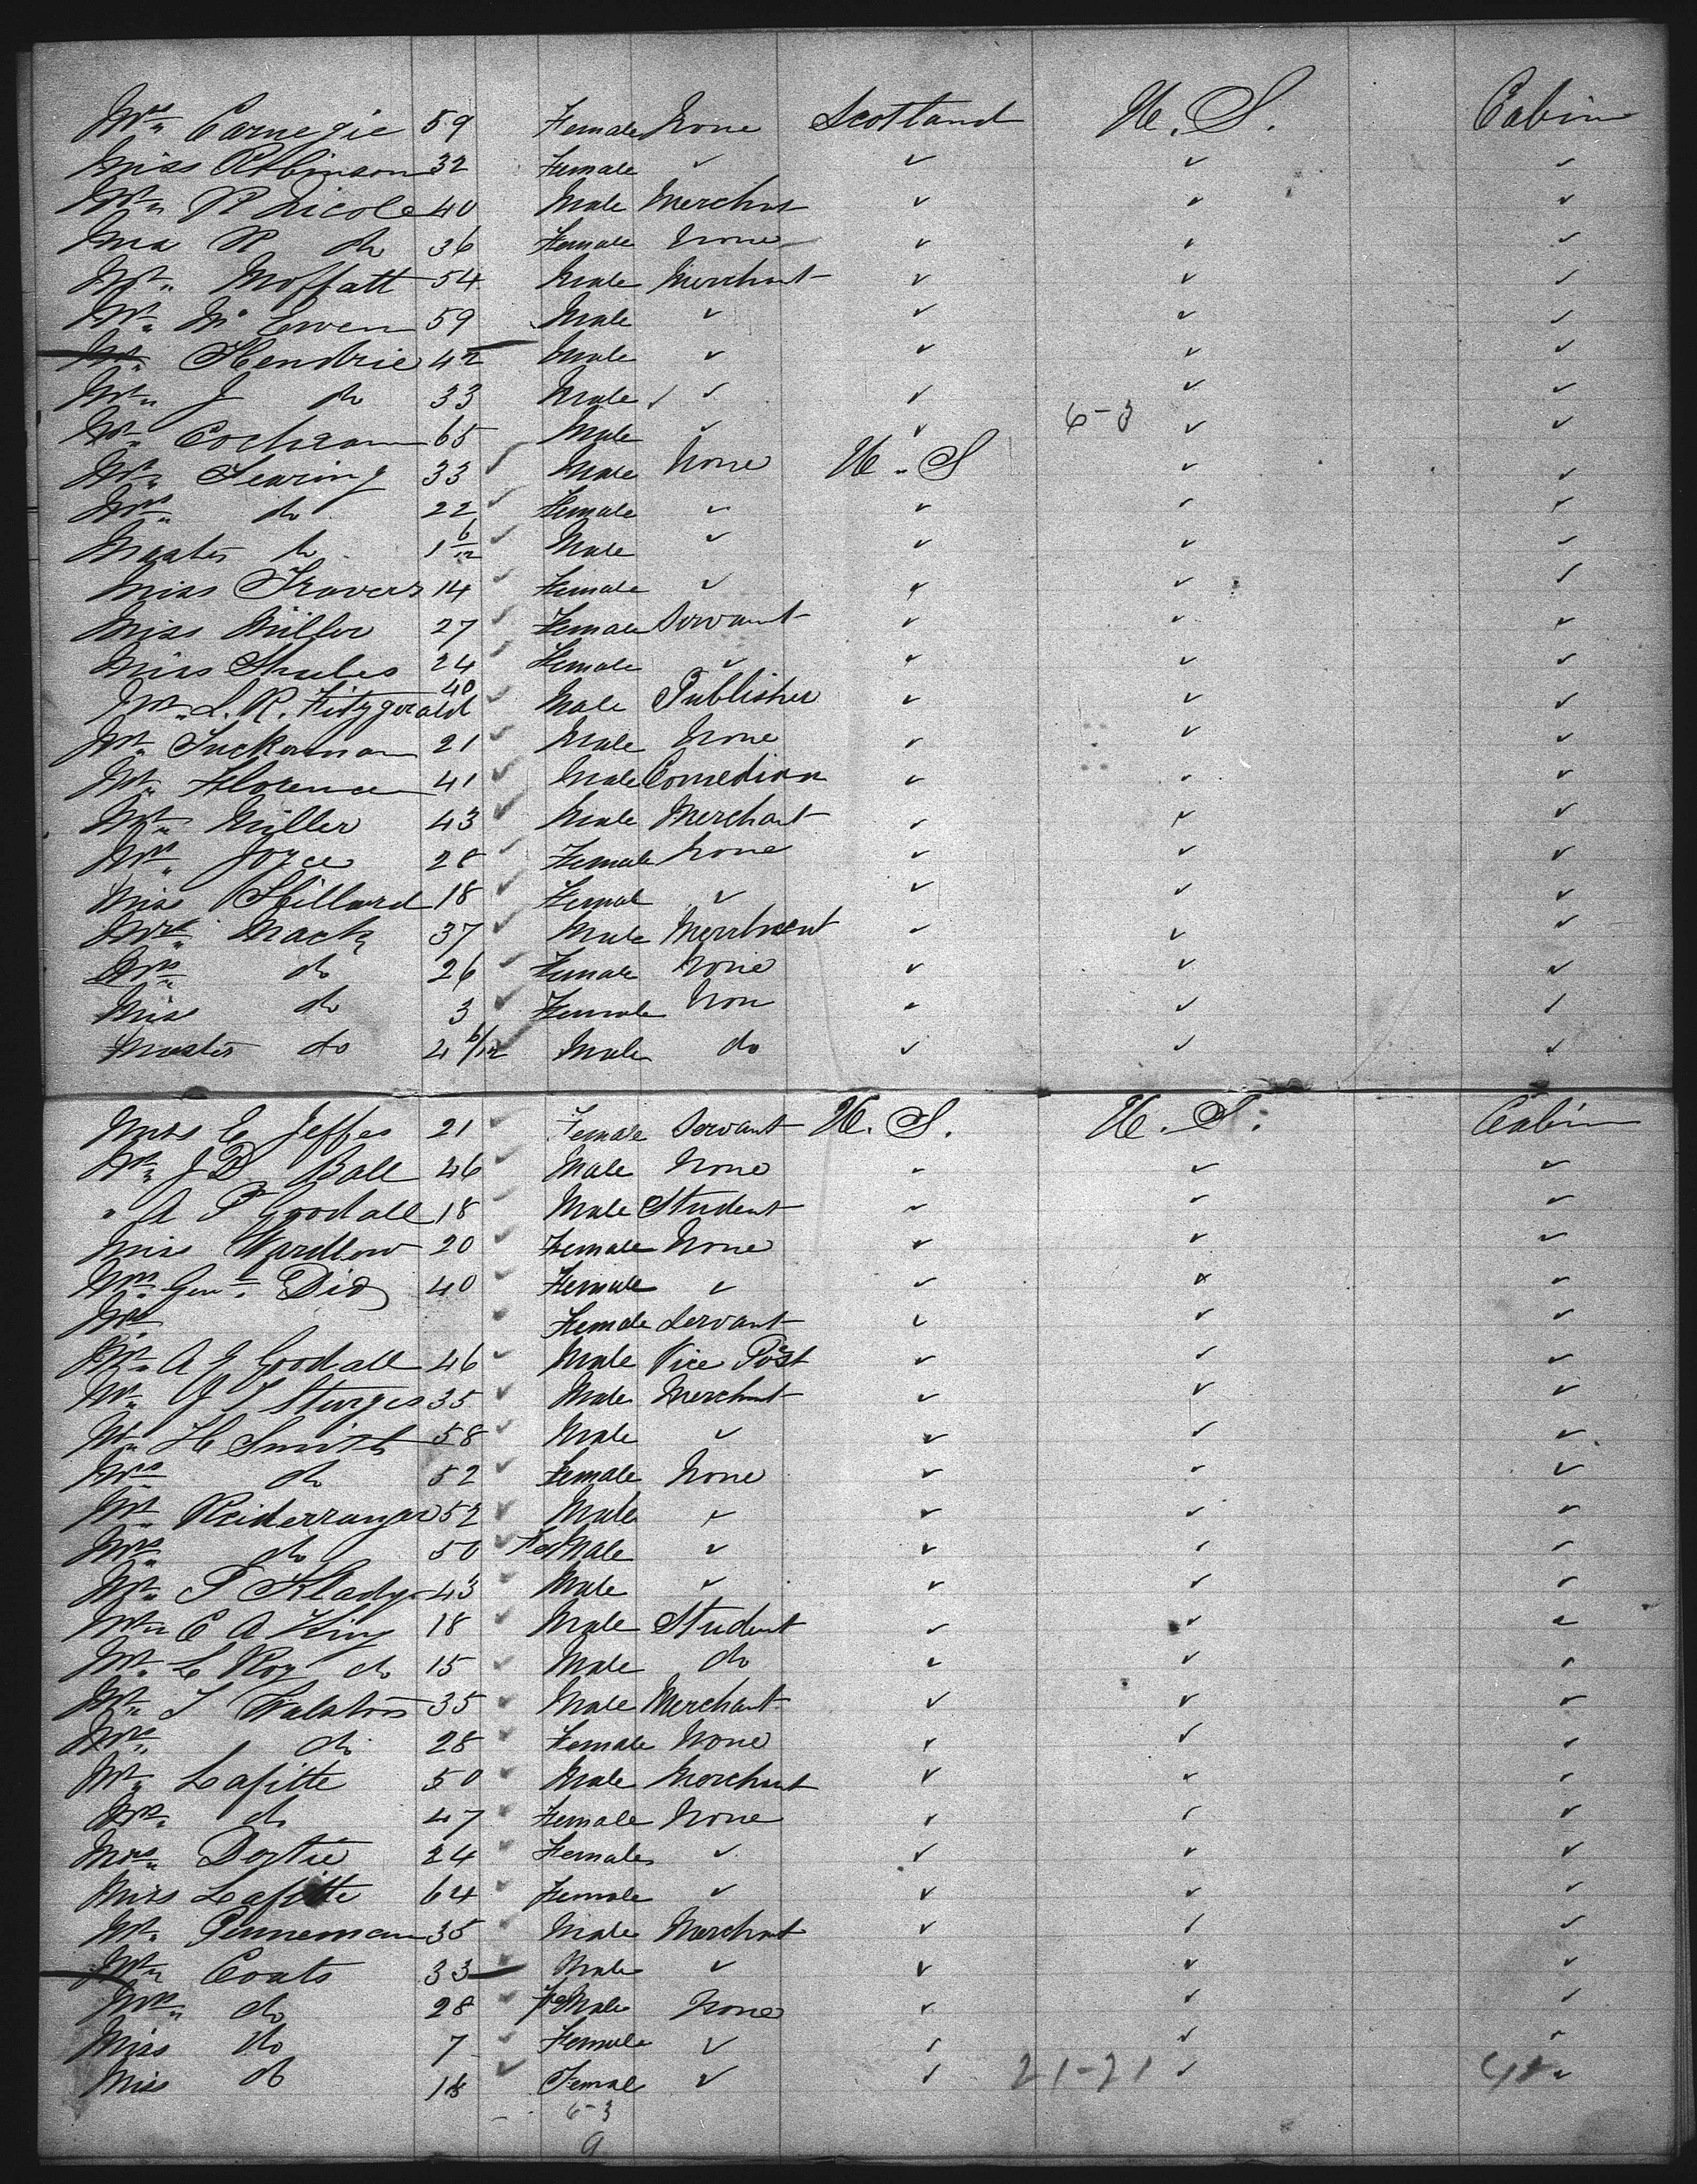 Mrs. Carnegie 59 Female None Scotland U. S. Cabin
Miss Robinson 32 Female ✓ ✓ ✓ ✓
Mr. R Nicole 40 Male Merchant ✓ ✓ ✓
Mrs R do 36 Female None ✓ ✓ ✓
Mr. Moffatt 54 Male Merchant ✓ ✓ ✓
Mr. Mc Ewen 59 Male ✓ ✓ ✓ ✓
Mr. Hendrie 42 Male ✓ ✓ ✓ ✓
Mr. J do 33 Male ✓ ✓ ✓ ✓
Mr. Cochran 65 Male ✓ ✓ 6-3 ✓ ✓
Mr. Fearing 33 Male None U. S ✓ ✓
Mrs. do 22 Female ✓ ✓ ✓ ✓
Master do 1 6/12 Male ✓ ✓ ✓ ✓
Miss Travers 14 Female ✓ ✓ ✓ ✓
Miss Miller 27 Female Servant ✓ ✓ ✓
Miss 24 Female ✓ ✓ ✓ ✓
Mr. L. R. Fitzgerald 40 Male Publisher ✓ ✓ ✓
Mr. Tuckerman 21 Male None ✓ ✓ ✓
Mr. Florence 41 Male Comedian ✓ ✓ ✓
Mr. Miller 43 Male Merchant ✓ ✓ ✓
Mrs. Joyce 28 Female None ✓ ✓ ✓
Miss Hillard 18 Femal ✓ ✓ ✓ ✓
Mr. Mack 37 Male Merchant ✓ ✓ ✓
Mrs. do 26 Female None ✓ ✓ ✓
Miss do 3 Female Non ✓ ✓ ✓
Master do 2 6/12 Male do ✓ ✓ ✓
Miss E Jeffes 21 Female Servant U. S. U. S. Cabin
Mr. J D Ball 46 Male None ✓ ✓ ✓
" A P Goodall 18 Male Student ✓ ✓ ✓
Miss Wardlow 20 Female None ✓ ✓ ✓
Mrs. Genl. Dix 40 Female ✓ ✓ ✓ ✓
Female Servant ✓ ✓ ✓
Mr. A G Goodall 46 Male Vice ✓ ✓ ✓
Mr. J S Sturges 35 Male Merchant ✓ ✓ ✓
Mr. H Smith 58 Male ✓ ✓ ✓ ✓
Mrs do 52 Female None ✓ ✓ ✓
Mr. 52 Male ✓ ✓ ✓ ✓
Mrs. do 50 FeMale ✓ ✓ ✓ ✓
Mr. P 43 Male ✓ ✓ ✓ ✓
Mr. C A King 18 Male Student ✓ ✓ ✓
Mr. Le Roy do 15 Male do ✓ ✓ ✓
Mr. 35 Male Merchant ✓ ✓ ✓
Mrs. do 28 Female None ✓ ✓ ✓
Mr. Lafitte 50 Male Merchant ✓ ✓ ✓
Mrs. do 47 Female None ✓ ✓ ✓
Mrs. 24 Female ✓ ✓ ✓ ✓
Miss Lafitte 64 Female ✓ ✓ ✓ ✓
Mr. Penneman 35 Male Merchant ✓ ✓ ✓
Mr. Coats 33 Male ✓ ✓ ✓ ✓
Mrs. do 28 FeMale None ✓ ✓ ✓
Miss do 7 Female ✓ ✓ ✓ ✓
Miss do Femal ✓ ✓ 21-21 ✓ ✓
6-3
9